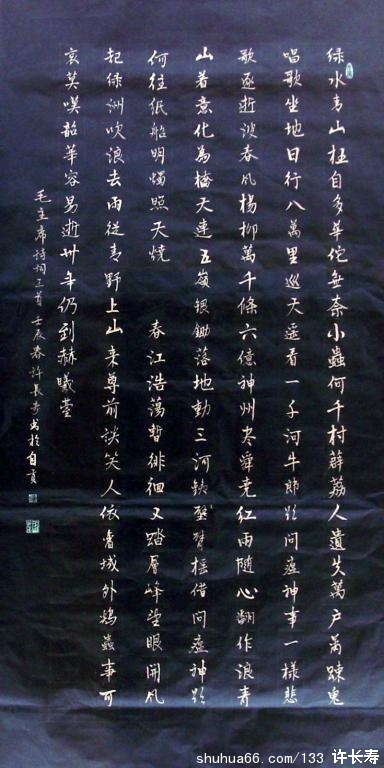 绿水青山枉自多华佗無奈小蟲何千村薜荔人遺失萬户萧踈鬼
唱歌坐地日行八萬里巡天遥看一千河牛郎欲问瘟神事一樣悲
歌逐逝波春风楊柳萬千條六億神州尽舜尭红雨随心翻作浪青
山着意化為橋天連五嶺银鋤落地動三河鉄壁臂摇借问瘟神欲
何往纸船明燭照天燒 春江浩蕩暫徘徊又踏層峰望眼開风
起绿洲吹浪去雨從青野上山来尊前谈笑人依舊域外鸡蟲事可
哀莫嘆韶華容易逝卅年仍到赫曦臺
毛主席诗词三首 壬辰春许長寿书於自贡
shuhua66.com/133 许长寿